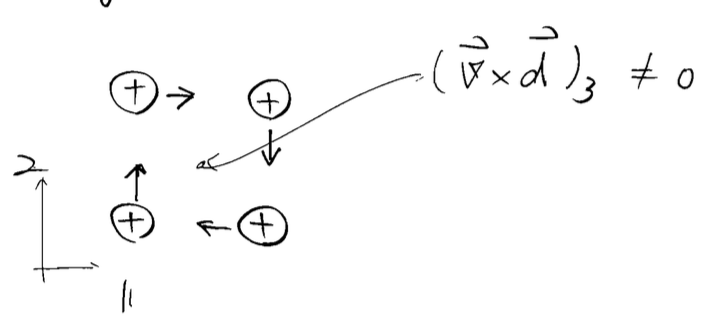 (∇⃗ × d⃗)₃ ≠ 0
+ → +
2
+ ← +
1